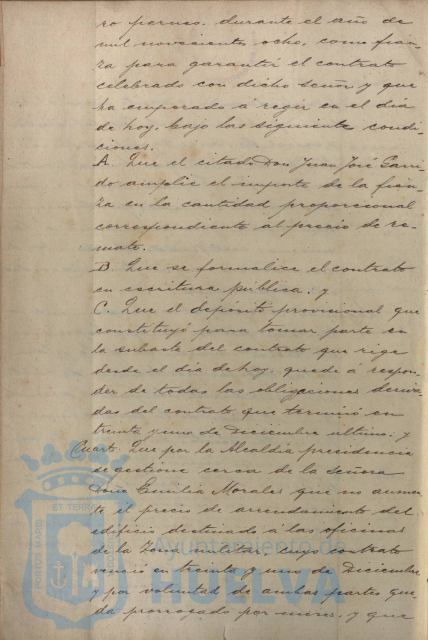 ro peruso, durante el año de
mil novecientos ocho, como fian-
za para garantir el contrato
celebrado con dicho señor y que
ha empezado á regir en el dia
de hoy, bajo las siguientes condi-
ciones.
A. Que el citado Don Juan José Garri-
do amplie el importe de la fian-
za en la cantidad proporcional
correspondiente al precio de re-
mate.
B. Que se formalice el contrato
en escritura pública; y
C. Que el depósito provisional que
constituyó para tomar parte en
la subasta del contrato que rige
desde el dia de hoy, quede á respon-
der de todas las obligaciones deriva-
das del contrato que terminó en
treinta y uno de Diciembre ultimo; y
Cuarto. Que por la Alcaldía presidencia
se gestione cerca de la señora
Doña Emilia Morales que no aumen-
te el precio de arrendamiento del
edificio destinado á las oficinas
de la Zona militar, cuyo contrato
venció en treinta y uno de Diciembre
y por voluntad de ambas partes que-
da prorrogado por meses, y que
PORTUS MARIS ET TERRÆ
Ayuntamiento de
HUELVA